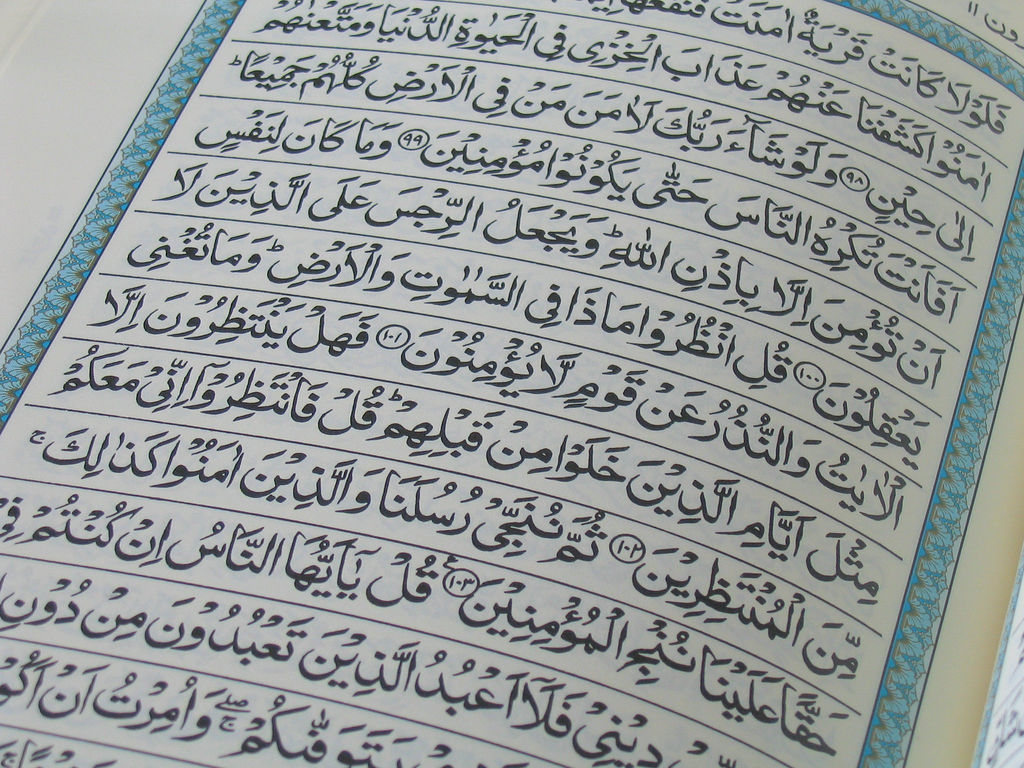 فَلَوْلَا كَانَتْ قَرْيَةٌ اٰمَنَتْ فَنَفَعَهَاۤ
اٰمَنُوْا كَشَفْنَا عَنْهُمْ عَذَابَ الْخِزْیِ فِی الْحَيٰوةِ الدُّنْيَا وَمَتَّعْنٰهُمْ
اِلٰی حِيْنٍ ۝۹۸ وَلَوْ شَآءَ رَبُّكَ لَاٰمَنَ مَنْ فِی الْاَرْضِ كُلُّهُمْ جَمِيْعًا ؕ
اَفَاَنْتَ تُكْرِهُ النَّاسَ حَتّٰی يَكُوْنُوْا مُؤْمِنِيْنَ ۝۹۹ وَمَا كَانَ لِنَفْسٍ
اَنْ تُؤْمِنَ اِلَّا بِاِذْنِ اللّٰهِ ؕ وَيَجْعَلُ الرِّجْسَ عَلَی الَّذِيْنَ لَا
يَعْقِلُوْنَ ۝۱۰۰ قُلِ انْظُرُوْا مَاذَا فِی السَّمٰوٰتِ وَالْاَرْضِ ؕ وَمَا تُغْنِی
الْاٰيٰتُ وَالنُّذُرُ عَنْ قَوْمٍ لَّا يُؤْمِنُوْنَ ۝۱۰۱ فَهَلْ يَنْتَظِرُوْنَ اِلَّا
مِثْلَ اَيَّامِ الَّذِيْنَ خَلَوْا مِنْ قَبْلِهِمْ ؕ قُلْ فَانْتَظِرُوْۤا اِنِّیْ مَعَكُمْ
مِّنَ الْمُنْتَظِرِيْنَ ۝۱۰۲ ثُمَّ نُنَجِّیْ رُسُلَنَا وَالَّذِيْنَ اٰمَنُوْا كَذٰلِكَ ۚ
حَقًّا عَلَيْنَا نُنْجِ الْمُؤْمِنِيْنَ ۝۱۰۳ قُلْ يٰۤاَيُّهَا النَّاسُ اِنْ كُنْتُمْ فِیْ
دِيْنِیْ فَلَاۤ اَعْبُدُ الَّذِيْنَ تَعْبُدُوْنَ مِنْ دُوْنِ
يَتَوَفّٰىكُمْ ۖۚ وَاُمِرْتُ اَنْ